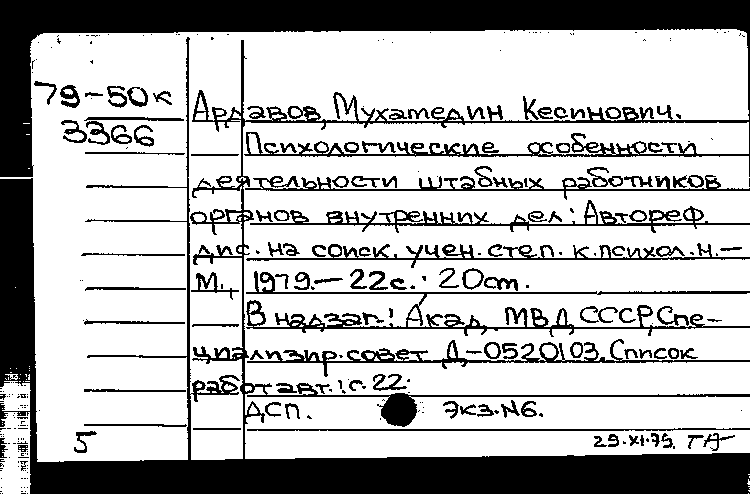 79-50к
3366
Ардавов, Мухамедин Кесинович.
Психологические особенности
деятельности штабных работников
органов внутренних дел: Автореф.
дис. на соиск. учен. степ. к. психол. н. -
М., 1979. - 22 с.; 20 см.
В надзаг.: Акад. МВД СССР, Спе-
циализир. совет Д-0520103. Список
работ авт.: с. 22.
ДСП. Экз. N6.
5
29.XI.79.